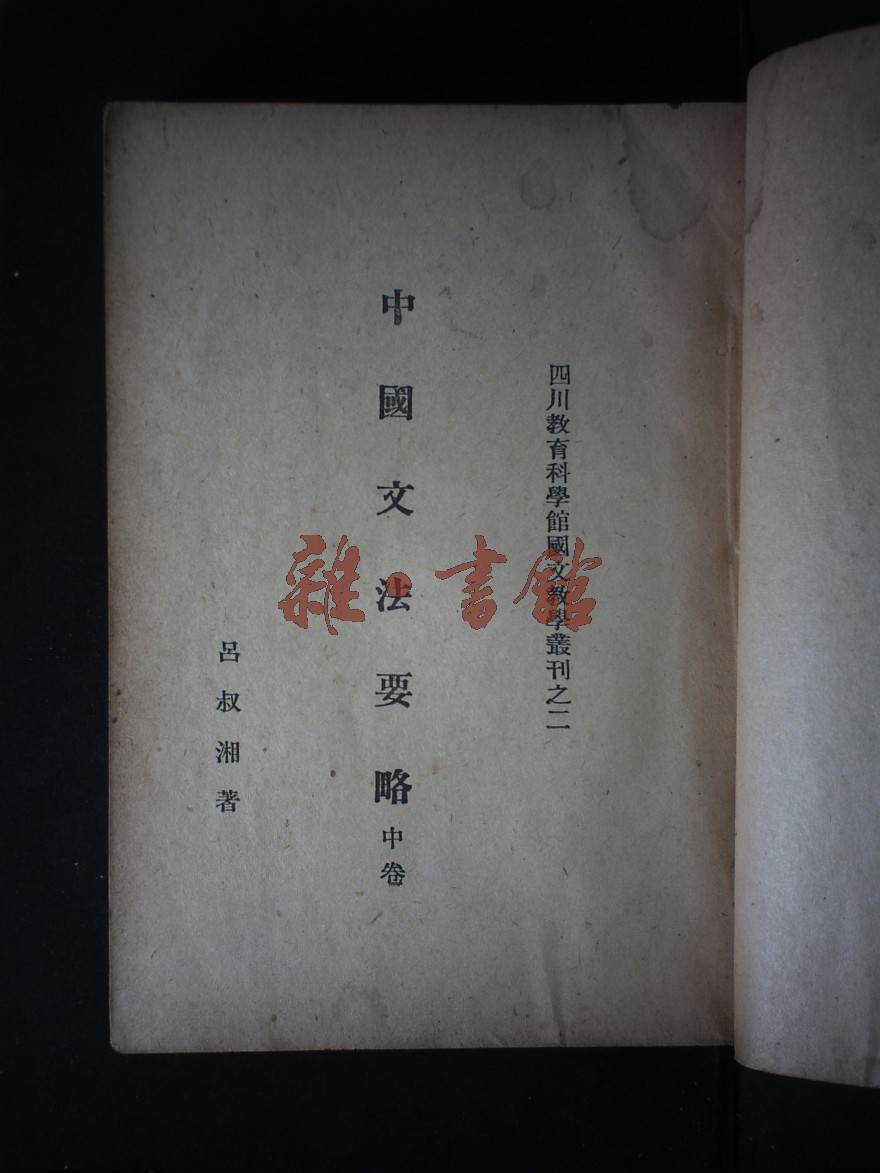 四川教育科學館國文教學叢刊之二
中國文法要略中卷
呂叔湘著
雜·書館